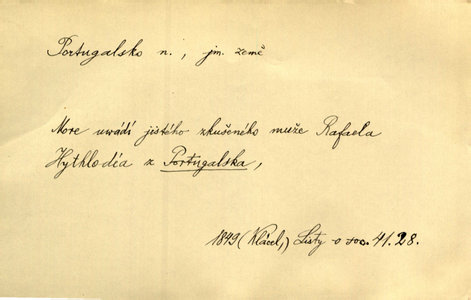 Portugalsko n., jm. země
More uwádí jistého zkušeného muže Rafaela
Hythlodéa z Portugalska,
1849 (Klácel,) Listy o soc. 41.28.